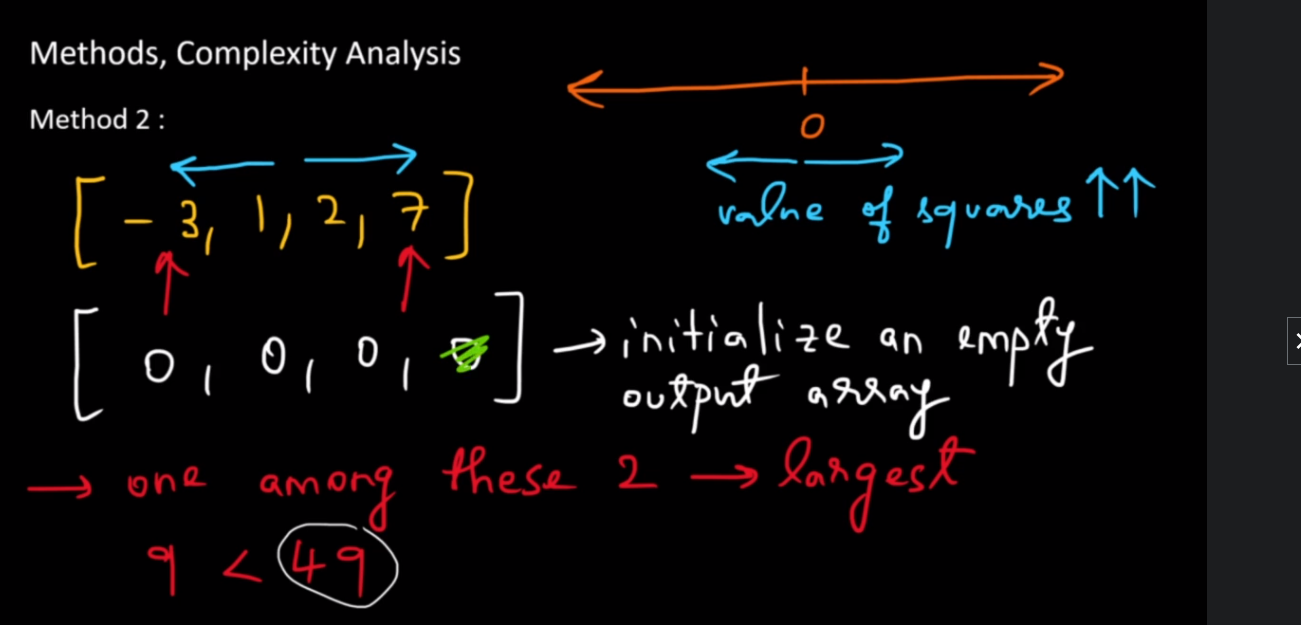 Methods, Complexity Analysis
Method 2 :
0
value of squares ↑↑
[ - 3, 1, 2, 7 ]
[ 0, 0, 0, 0 ] → initialize an empty
output array
→ one among these 2 → largest
9 < 49